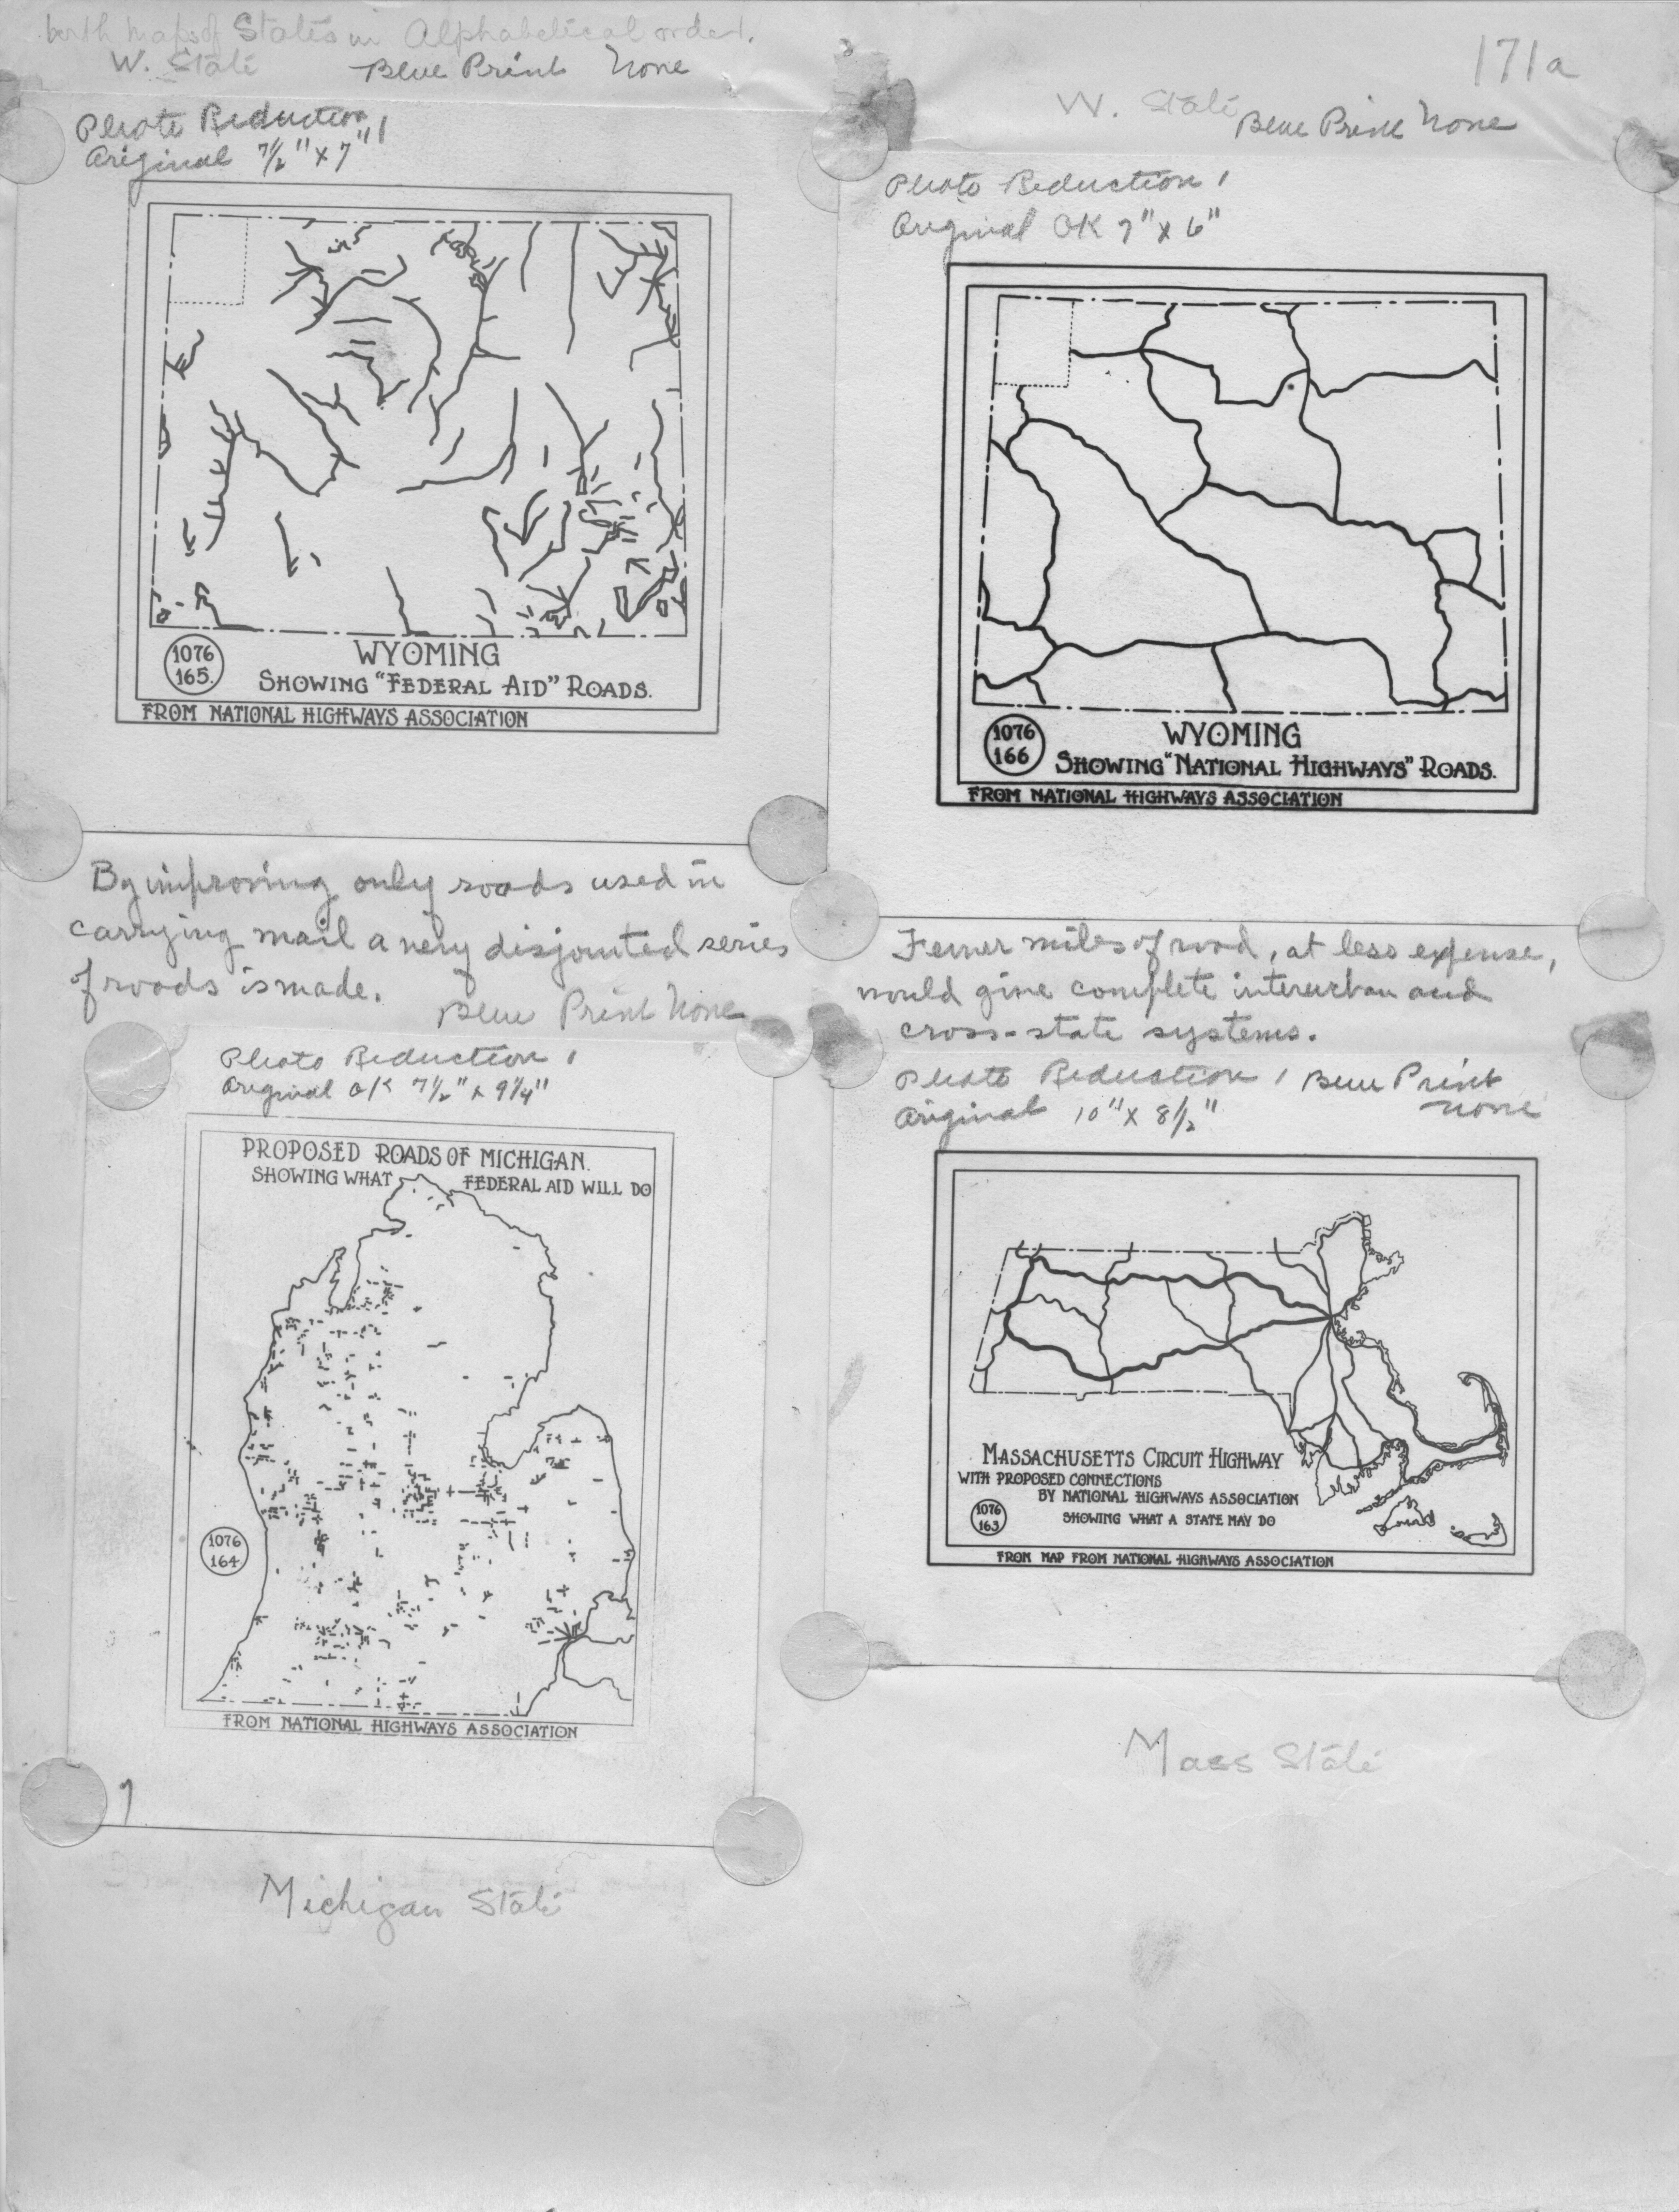 with maps of States in Alphabetical order.
W. State Blue Print None
171a
Photo Reduction 1
Original 7 1/2" x 7"
WYOMING
1076
165.
SHOWING "FEDERAL AID" ROADS.
FROM NATIONAL HIGHWAYS ASSOCIATION
By improving only roads used in
carrying mail a very disjointed series
of roads is made.
W. State Blue Print None
Photo Reduction 1
Original OK 7" x 6"
WYOMING
1076
166
SHOWING "NATIONAL HIGHWAYS" ROADS.
FROM NATIONAL HIGHWAYS ASSOCIATION
Fewer miles of road, at less expense,
would give complete interurban and
cross-state systems.
Blue Print None
Photo Reduction 1
Original OK 7 1/2" x 9 1/4"
PROPOSED ROADS OF MICHIGAN.
SHOWING WHAT FEDERAL AID WILL DO
1076
164
FROM NATIONAL HIGHWAYS ASSOCIATION
Michigan State
Photo Reduction 1 Blue Print
None
Original 10" x 8 1/2"
MASSACHUSETTS CIRCUIT HIGHWAY
WITH PROPOSED CONNECTIONS
BY NATIONAL HIGHWAYS ASSOCIATION
1076
163
SHOWING WHAT A STATE MAY DO
FROM MAP FROM NATIONAL HIGHWAYS ASSOCIATION
Mass State